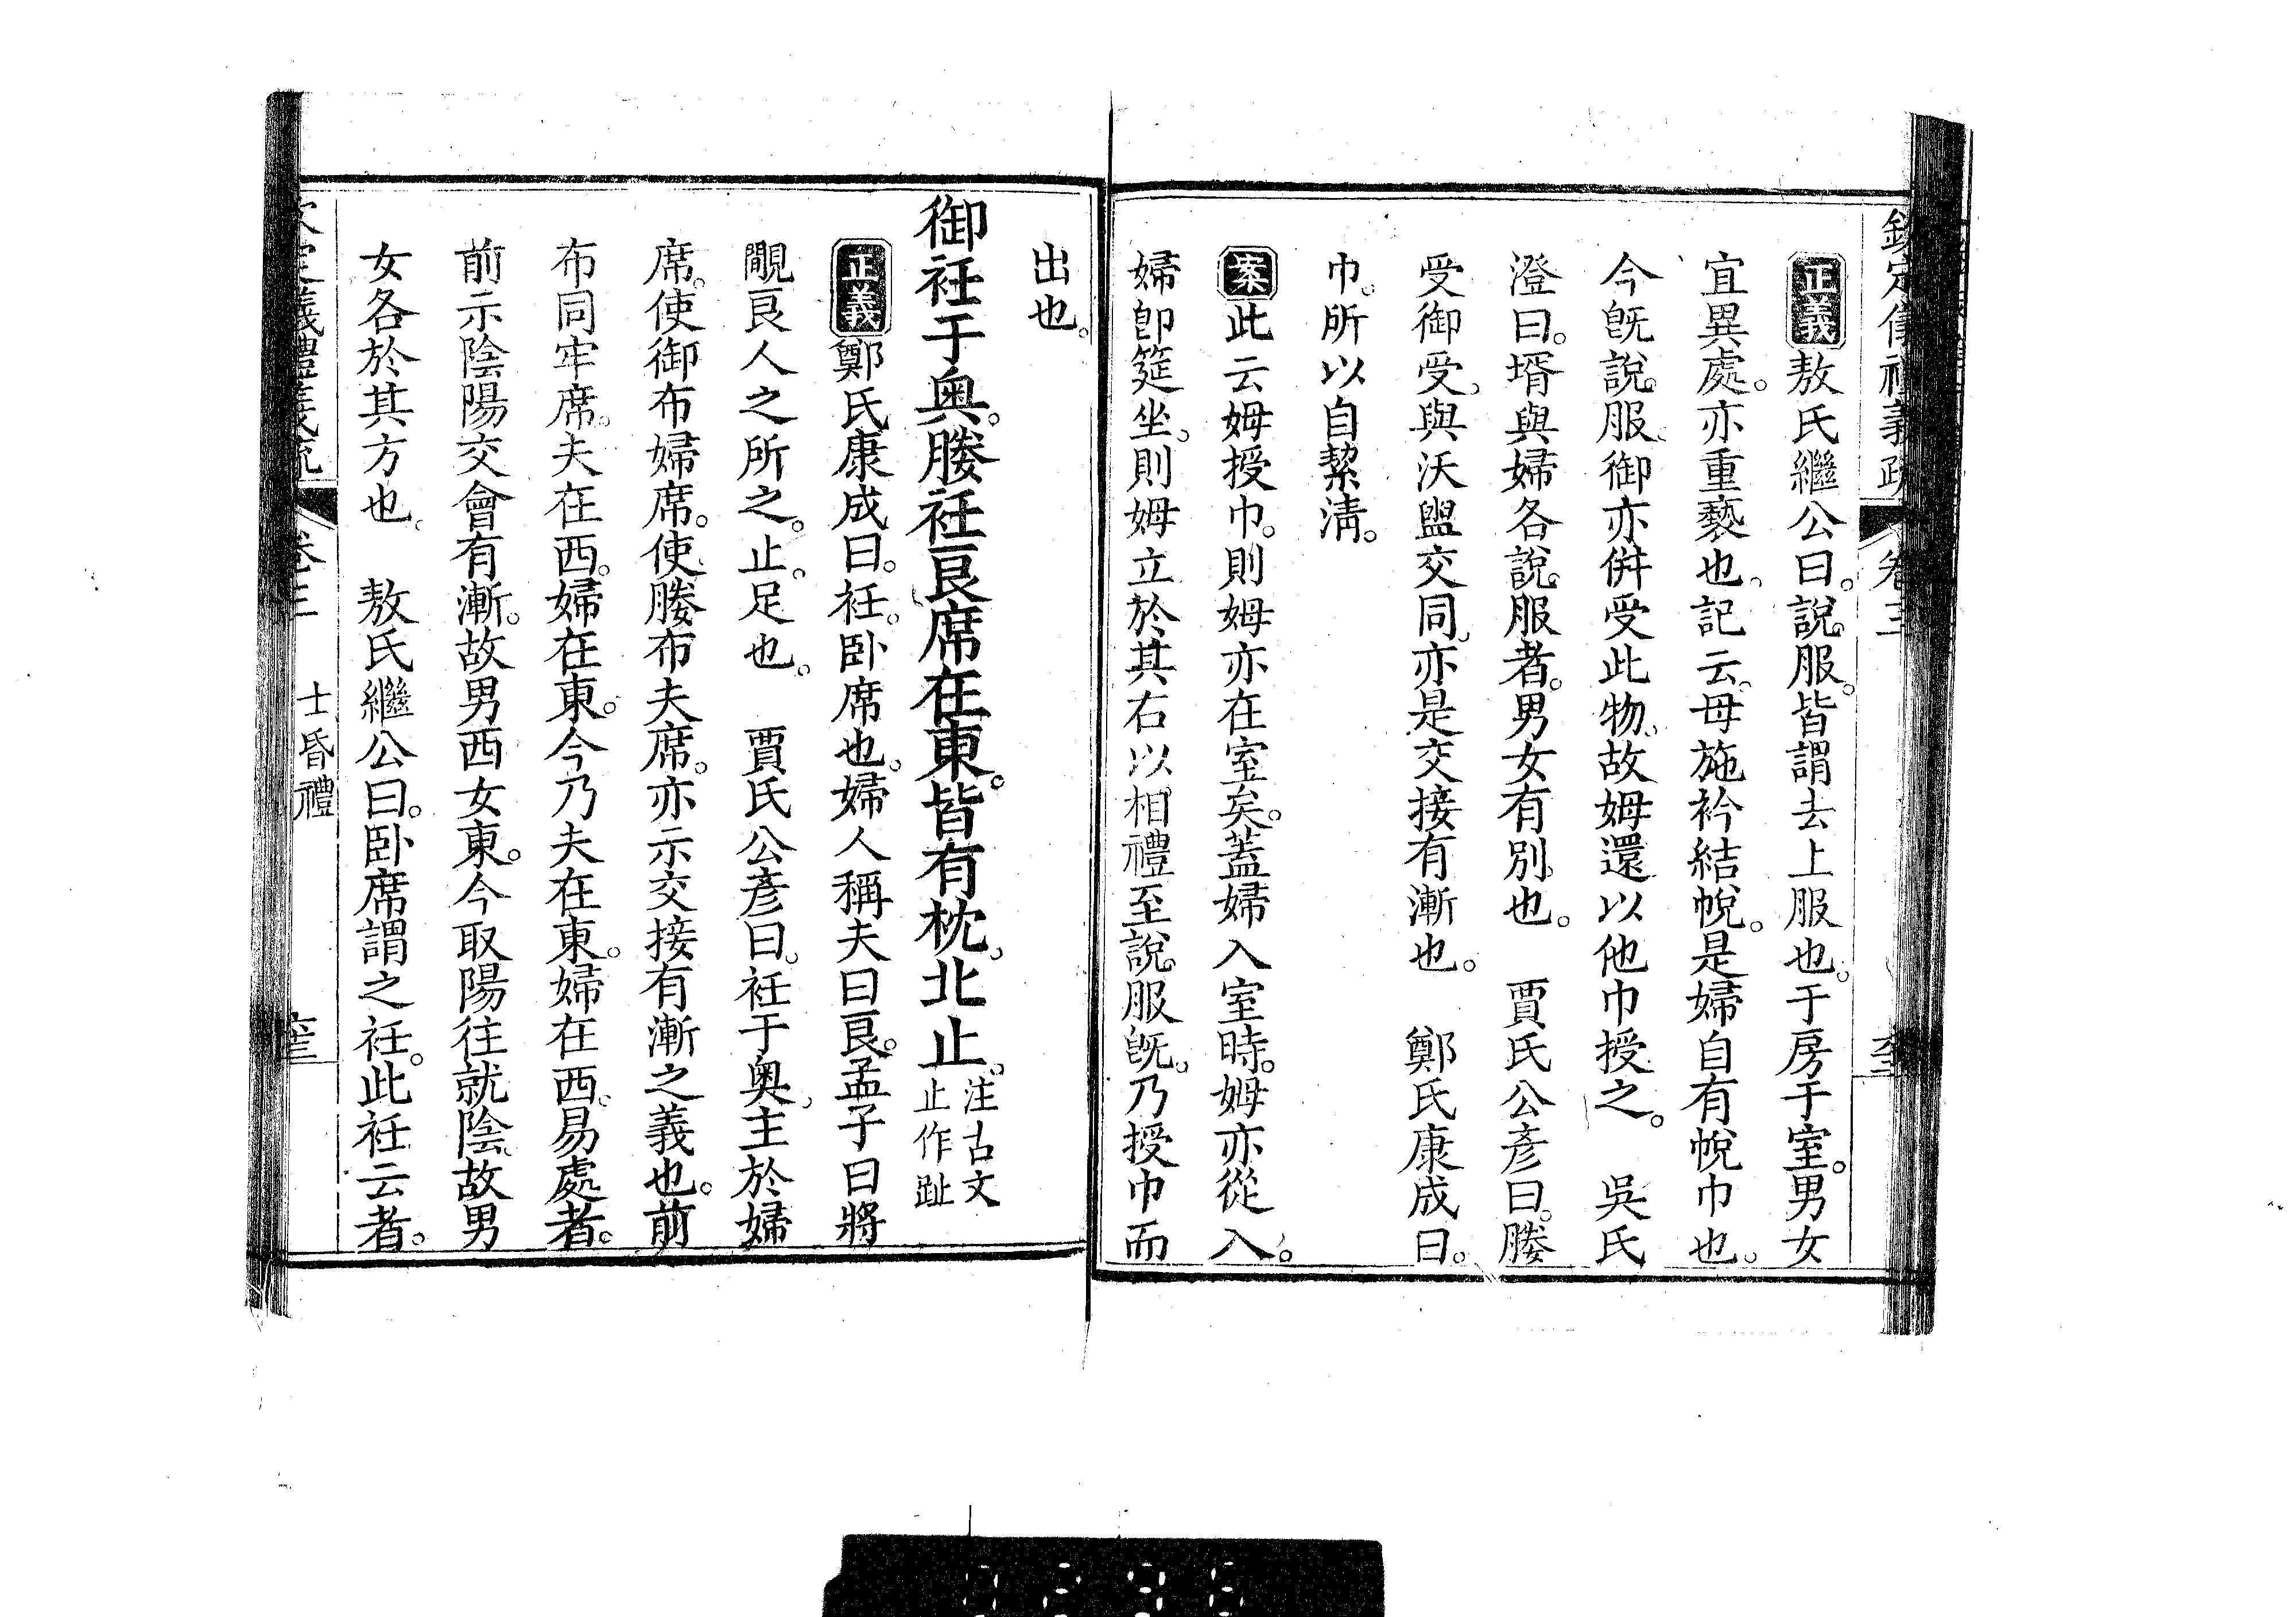 欽定儀禮義疏 卷三
正義敖氏繼公曰。說服。皆謂去上服也。于房于室。男女
宜異處。亦重褻也。記云。母施衿結帨。是婦自有帨巾也。
今旣說服。御亦併受此物。故姆還以他巾授之。 吳氏
澄曰。壻與婦各說服者。男女有別也。 賈氏公彥曰。媵
受御受。與沃盥交同。亦是交接有漸也。 鄭氏康成曰。
巾。所以自絜淸。
案此云姆授巾。則姆亦在室矣。蓋婦入室時。姆亦從入。
婦卽筵坐。則姆立於其右以相禮。至說服旣。乃授巾而
出也。
御衽于奧。媵衽良席在東。皆有枕。北止。注古文
止作趾
正義鄭氏康成曰。衽。臥席也。婦人稱夫曰良。孟子曰將
覸良人之所之。止。足也。 賈氏公彥曰。衽于奧。主於婦
席。使御布婦席。使媵布夫席。亦示交接有漸之義也。前
布同牢席。夫在西。婦在東。今乃夫在東。婦在西。易處者。
前示陰陽交會有漸。故男西女東。今取陽往就陰。故男
女各於其方也。 敖氏繼公曰。臥席謂之衽。此衽云者。
欽定儀禮義疏 卷三 士昏禮